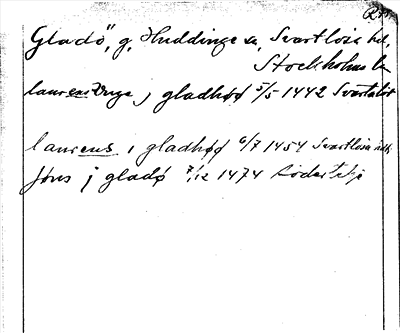 Gladö, g, Huddinge sn, Svartlösa hd,
Stockholms l.
laurens Unge j gladhø 5/5 1442
laurens i gladhø 6/7 1454 Svartlösa
Jöns j gladø 7/12 1474 Södertelje